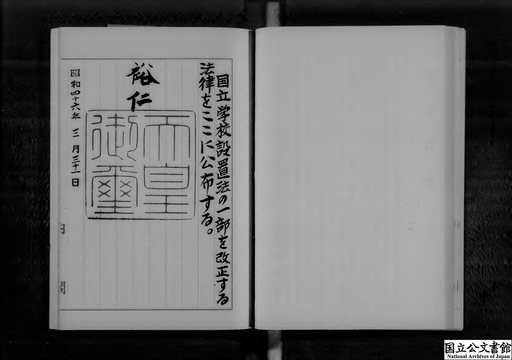 国立学校設置法の一部を改正する
法律をここに公布する。
裕仁
天皇
御璽
昭和四十六年三月三十一日
内閣
国立公文書館
National Archives of Japan